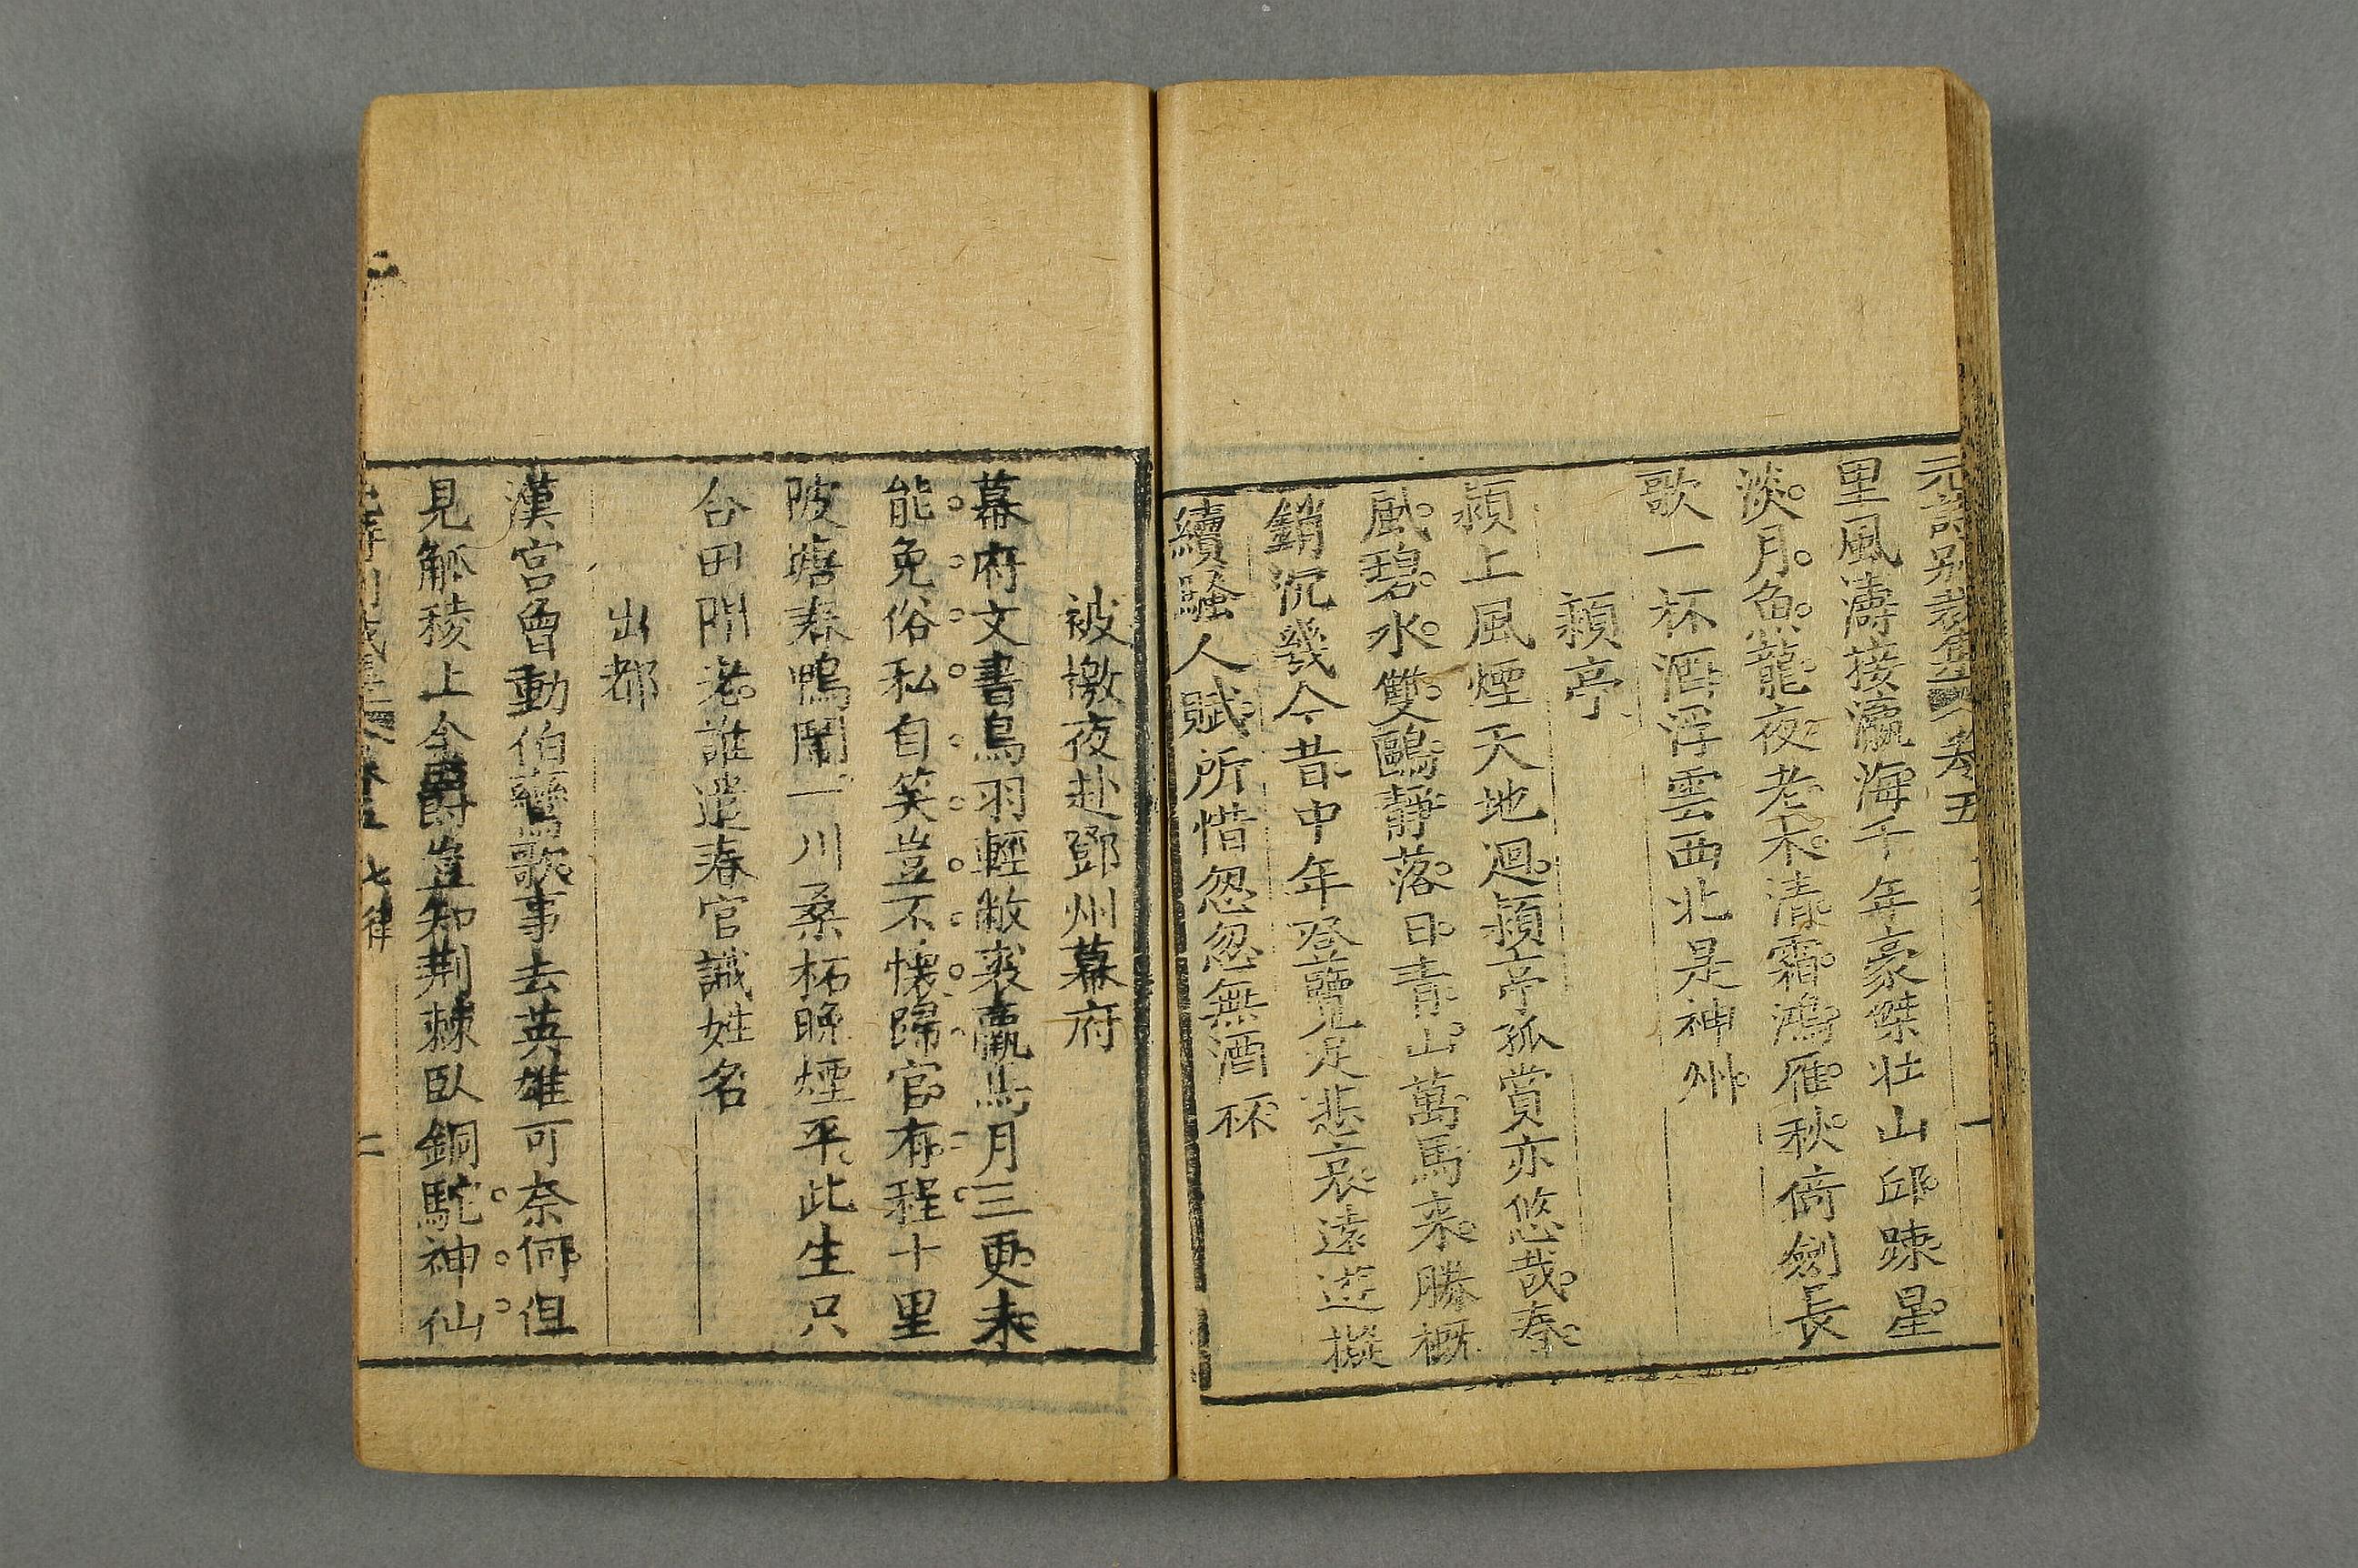 元詩別裁集 卷五
里風濤接瀛海千年豪傑壯山邱踈星
淡月魚龍夜老木清霜鴻雁秋倚劍長
歌一杯酒浮雲西北是神州
潁亭
潁上風煙天地迴潁亭孤賞亦悠哉春
風碧水雙鷗靜落日青山萬馬来勝概
銷沉幾今昔中年登覽足悲哀遠遊擬
續騷人賦所惜忽忽無酒杯
被檄夜赴鄧州幕府
幕府文書鳥羽輕敝裘羸馬月三更未
能免俗私自笑豈不懷歸官有程十里
陂塘春鴨鬧一川桑柘晚煙平此生只
合田間老誰遣春官識姓名
出都
漢宮曾動伯鸞歌事去英雄可奈何但
見觚稜上金爵豈知荆棘臥銅駝神仙
卷五 七律 二